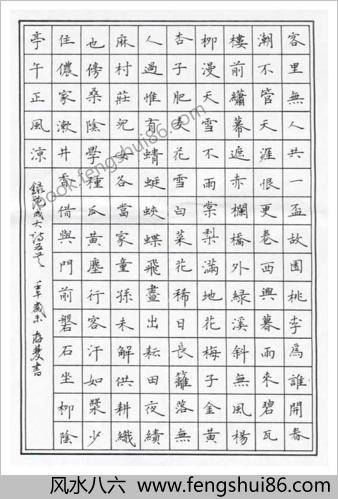 客里無人共一盃故園桃李為誰開春
潮不管天涯恨更卷西興暮雨來碧瓦
樓前繡幕遮赤欄橋外綠溪斜無風楊
柳漫天雪不雨棠梨滿地花梅子金黃
杏子肥麦花雪白菜花稀日長籬落無
人過惟有蜻蜓蛺蝶飛晝出耘田夜績
麻村莊兒女各當家童孫未解供耕織
也傍桑陰學種瓜黃塵行客汗如漿少
住儂家漱井香借與門前磐石坐柳陰
亭午正風涼
錄范成大詩五首
書
book.fengshui86.com
风水八六 www.fengshui86.com